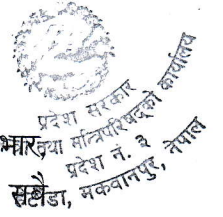 प्रदेश सरकार
तथा मन्त्रिपरिषद्को कार्यालय
प्रदेश नं. ३
मकवानपुर, नेपाल